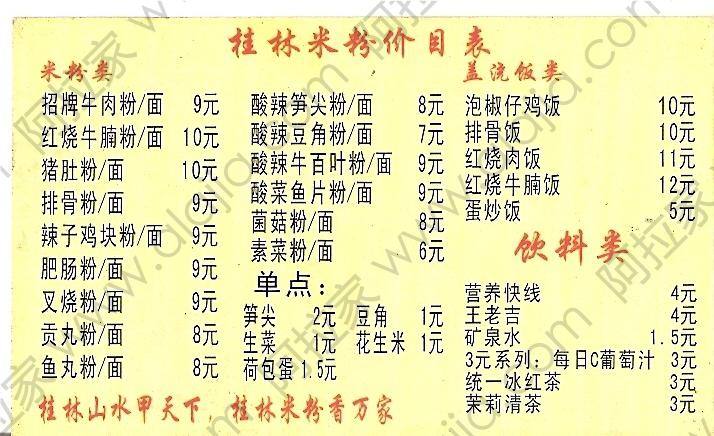 桂林米粉价目表
米粉类
招牌牛肉粉/面 9元
红烧牛腩粉/面 10元
猪肚粉/面 10元
排骨粉/面 9元
辣子鸡块粉/面 9元
肥肠粉/面 9元
叉烧粉/面 9元
贡丸粉/面 8元
鱼丸粉/面 8元
酸辣笋尖粉/面 8元
酸辣豆角粉/面 7元
酸辣牛百叶粉/面 9元
酸菜鱼片粉/面 9元
菌菇粉/面 8元
素菜粉/面 6元
单点：
笋尖 2元 豆角 1元
生菜 1元 花生米 1元
荷包蛋 1.5元
盖浇饭类
泡椒仔鸡饭 10元
排骨饭 10元
红烧肉饭 11元
红烧牛腩饭 12元
蛋炒饭 5元
饮料类
营养快线 4元
王老吉 4元
矿泉水 1.5元
3元系列：每日C葡萄汁 3元
统一冰红茶 3元
茉莉清茶 3元
桂林山水甲天下，桂林米粉香万家
阿拉家 www.dlajia.com